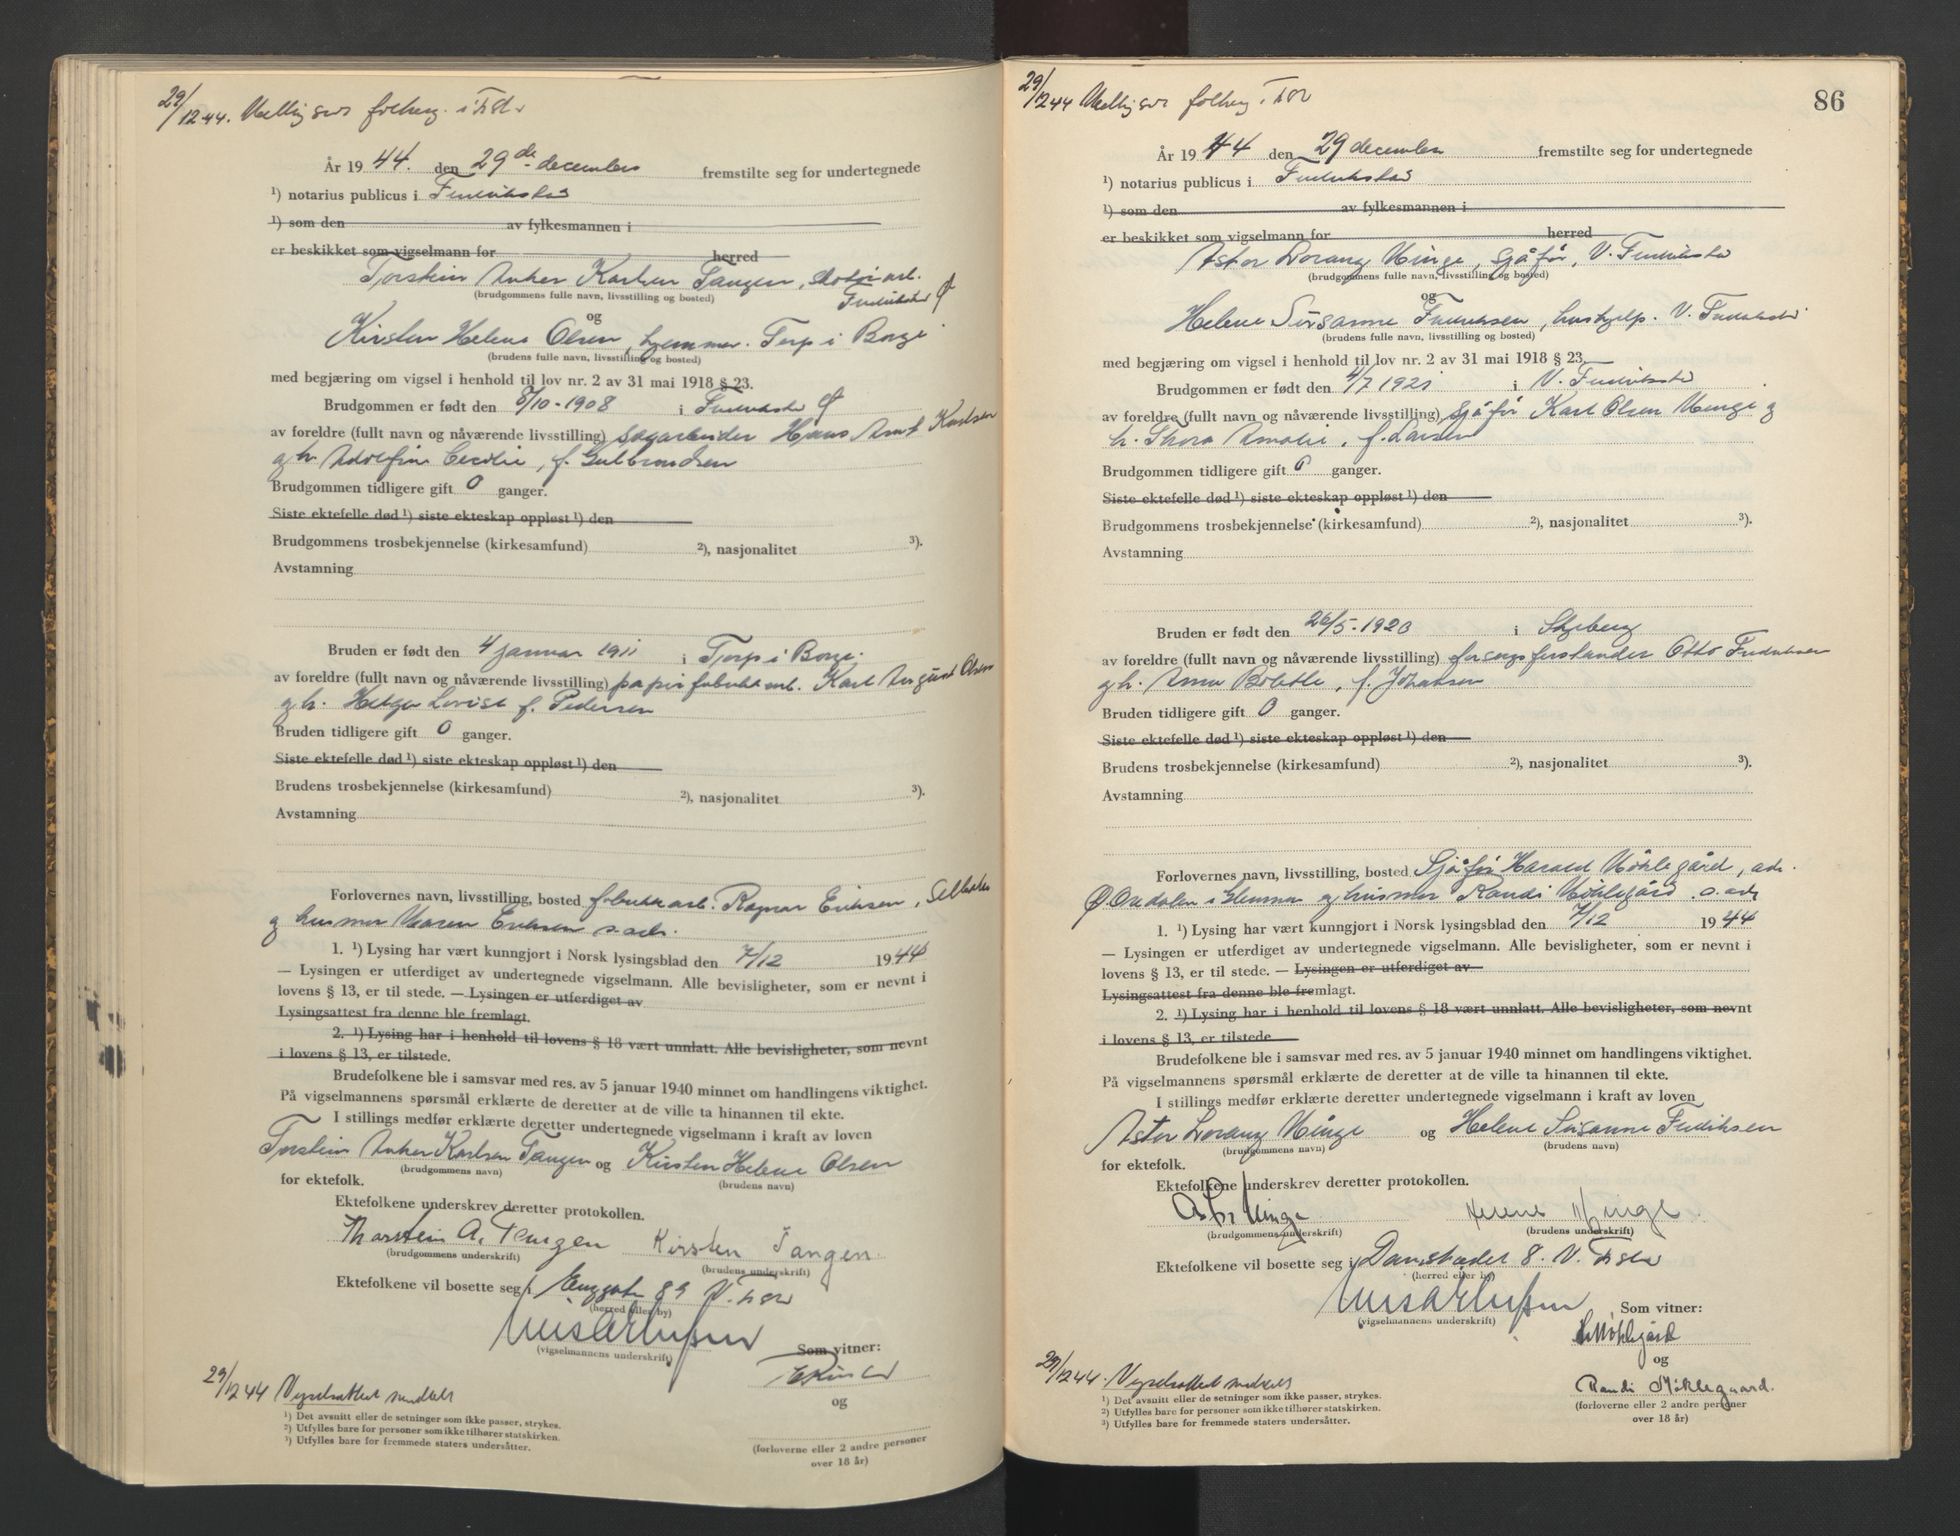 29/12 44. folkereg. i Fst.
År 1944. den 29 de december fremstilte seg for undertegnede
¹) notarius publicus i Fredrikstad
¹) som den av fylkesmannen i
er beskikket som vigselmann for herred
Torstein Anker Karlsen Tangen,
Fredrikstad
(brudgommens fulle navn, livsstilling og bosted)
og
Kirsten Helene Olsen, hjemmev. Torp i Borge
(brudens fulle navn, livsstilling og bosted)
med begjæring om vigsel i henhold til lov nr. 2 av 31 mai 1918 § 23.
Brudgommen er født den 8/10-1908 i Fredrikstad
av foreldre (fullt navn og nåværende livsstilling) sagarbeider Hans Arnt Karlsen
og h. Adolfine Cecilie, f. Gulbrandsen
Brudgommen tidligere gift 0 ganger.
Siste ektefelle død ¹) siste ekteskap oppløst ¹) den
Brudgommens trosbekjennelse (kirkesamfund) ²), nasjonalitet ³).
Avstamning
Bruden er født den 4 januar 1911 i Torp i Borge.
av foreldre (fullt navn og nåværende livsstilling) papirfabrikkarb. Karl August Olsen
og h. Helga Lovise f. Pedersen
Bruden tidligere gift 0 ganger.
Siste ektefelle død ¹) siste ekteskap oppløst ¹) den
Brudens trosbekjennelse (kirkesamfund) ²), nasjonalitet ³).
Avstamning
Forlovernes navn, livsstilling, bosted fabrikkarb. Ragnar Eriksen, Selbak
og husmor Maren Eriksen s. adr.
1. ¹) Lysing har vært kunngjort i Norsk lysingsblad den 7/12 1944
— Lysingen er utferdiget av undertegnede vigselmann. Alle bevisligheter, som er nevnt i
lovens § 13, er til stede. — Lysingen er utferdiget av
Lysingsattest fra denne ble fremlagt.
2. ¹) Lysing har i henhold til lovens § 18 vært unnlatt. Alle bevisligheter, som nevnt
i lovens § 13, er tilstede.
Brudefolkene ble i samsvar med res. av 5 januar 1940 minnet om handlingens viktighet.
På vigselmannens spørsmål erklærte de deretter at de ville ta hinannen til ekte.
I stillings medfør erklærte deretter undertegnede vigselmann i kraft av loven
Torstein Anker Karlsen Tangen og Kirsten Helene Olsen
(brudgommens navn) (brudens navn)
for ektefolk.
Ektefolkene underskrev deretter protokollen.
Thorstein A. Tangen Kirsten Tangen.
(brudgommens underskrift) (brudens underskrift)
Ektefolkene vil bosette seg i Enggata 89 V. Fstd
(herred eller by)
(vigselmannens underskrift)
Som vitner:
29/12 44 Vigselsattest meddelt
og
¹) Det avsnitt eller de setninger som ikke passer, strykes.
²) Utfylles bare for personer som ikke tilhører statskirken.
³) Utfylles bare for fremmede staters undersåtter.
(forloverne eller 2 andre personer
over 18 år)
86
29/12 44 folkereg. i Fst
År 1944 den 29 december fremstilte seg for undertegnede
¹) notarius publicus i Fredrikstad
¹) som den av fylkesmannen i
er beskikket som vigselmann for herred
Astor Lorang Minge, sjåfør, V. Fredrikstad
(brudgommens fulle navn, livsstilling og bosted)
og
Helene Susanne Fredriksen, hushjelp. V. Fredrikstad
(brudens fulle navn, livsstilling og bosted)
med begjæring om vigsel i henhold til lov nr. 2 av 31 mai 1918 § 23.
Brudgommen er født den 4/7 1921 i V. Fredrikstad
av foreldre (fullt navn og nåværende livsstilling) sjåfør Karl Olsen Minge og
h. Thora Amalie, f. Larsen
Brudgommen tidligere gift 0 ganger.
Siste ektefelle død ¹) siste ekteskap oppløst ¹) den
Brudgommens trosbekjennelse (kirkesamfund) ²), nasjonalitet ³).
Avstamning
Bruden er født den 26/5-1920 i Skjeberg
av foreldre (fullt navn og nåværende livsstilling) forsorgsforstander Otto Fredriksen
og h. Anna Bolette, f. Johansen
Bruden tidligere gift 0 ganger.
Siste ektefelle død ¹) siste ekteskap oppløst ¹) den
Brudens trosbekjennelse (kirkesamfund) ²), nasjonalitet ³).
Avstamning
Forlovernes navn, livsstilling, bosted Sjåfør Harald Møklegård, adr.
i Glemmen og husmor Randi Møklegård s. adr
1. ¹) Lysing har vært kunngjort i Norsk lysingsblad den 7/12 1944
— Lysingen er utferdiget av undertegnede vigselmann. Alle bevisligheter, som er nevnt i
lovens § 13, er til stede. — Lysingen er utferdiget av
Lysingsattest fra denne ble fremlagt.
2. ¹) Lysing har i henhold til lovens § 18 vært unnlatt. Alle bevisligheter, som nevnt
i lovens § 13, er tilstede
Brudefolkene ble i samsvar med res. av 5 januar 1940 minnet om handlingens viktighet.
På vigselmannens spørsmål erklærte de deretter at de ville ta hinannen til ekte.
I stillings medfør erklærte deretter undertegnede vigselmann i kraft av loven
Astor Lorang Minge og Helene Susanne Fredriksen
(brudgommens navn) (brudens navn)
for ektefolk.
Ektefolkene underskrev deretter protokollen.
Astor Minge Helene Minge.
(brudgommens underskrift) (brudens underskrift)
Ektefolkene vil bosette seg i Damstredet 8. V. Fstd
(herred eller by)
(vigselmannens underskrift)
Som vitner:
H Møklegård
og
29/12 44. Vigselsattest meddelt
Randi Møklegaard.
¹) Det avsnitt eller de setninger som ikke passer, strykes.
²) Utfylles bare for personer som ikke tilhører statskirken.
³) Utfylles bare for fremmede staters undersåtter.
(forloverne eller 2 andre personer
over 18 år)